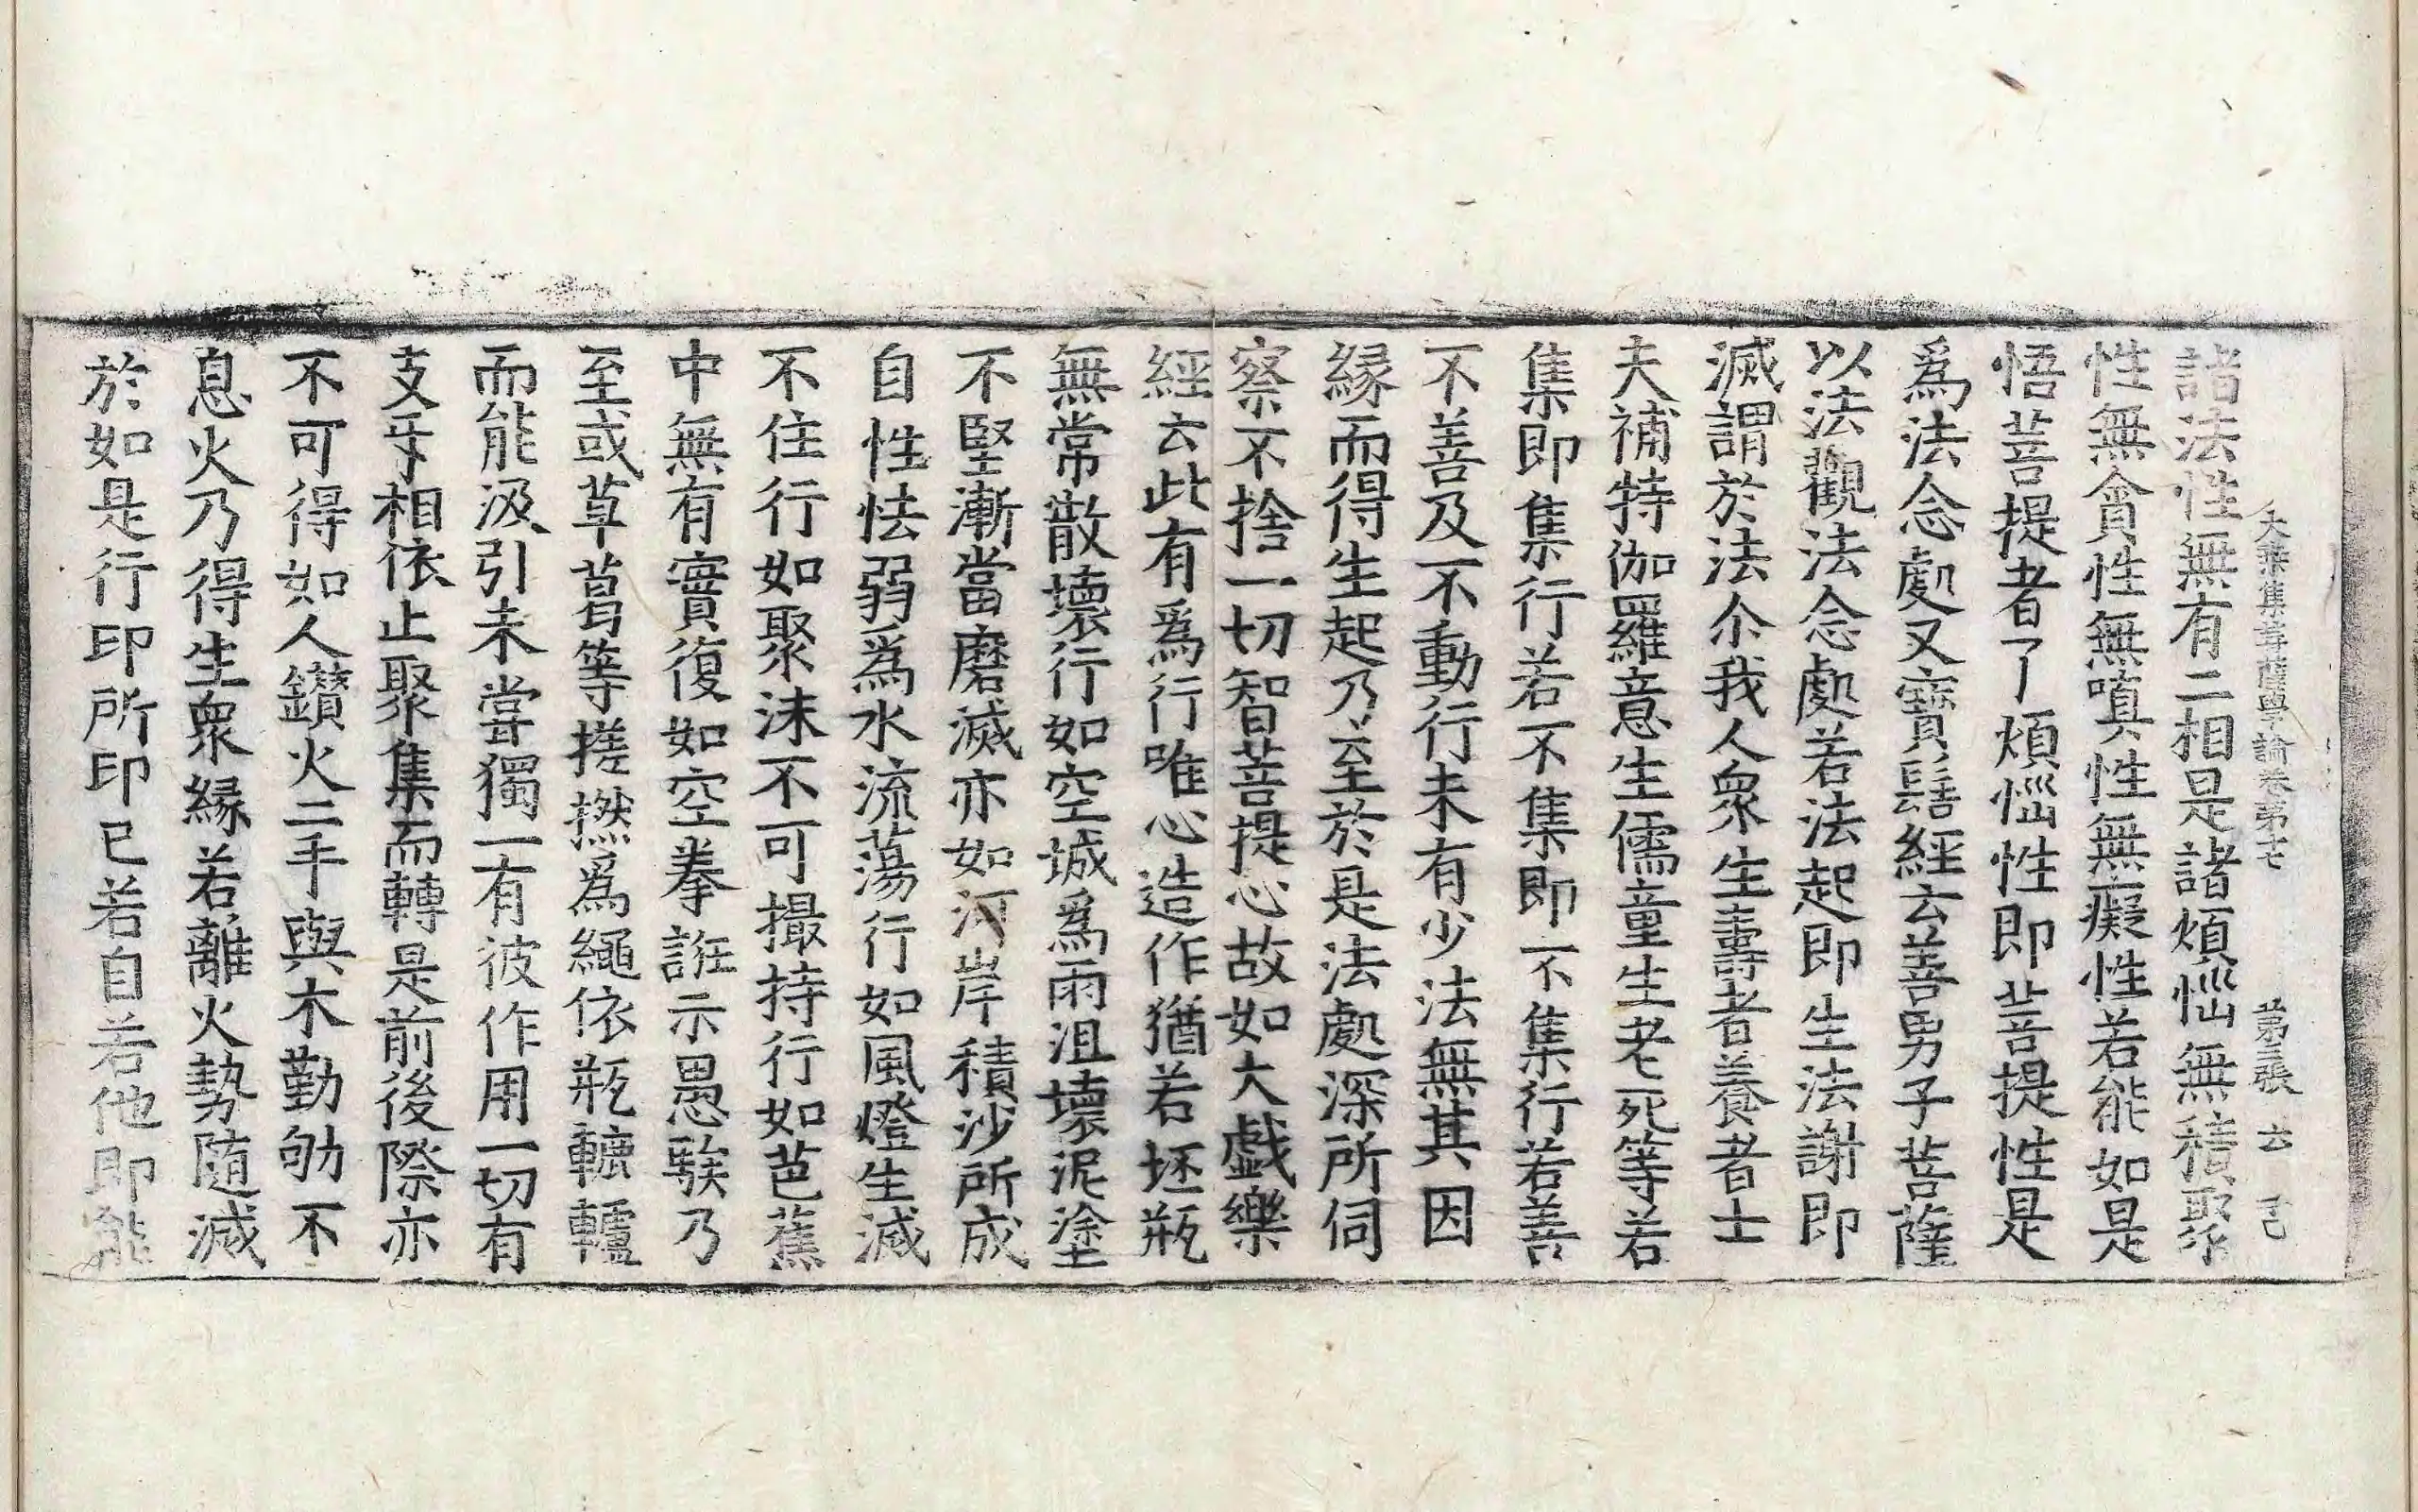 大乗集菩薩學論卷第十七　第三張　云
諸法性無有二相是諸煩惱無積聚
性無貪性無嗔性無癡性若能如是
悟菩提者了煩惱性即菩提性是
爲法念處又寶髻經云善男子菩薩
以法觀法念處若法起即生法謝即
滅謂於法尒我人衆生壽者養者士
夫補特伽羅意生儒童生老死等若
集即集行若不集即不集行若善
不善及不動行未有少法無其因
緣而得生起乃至於是法處深所伺
察不捨一切智菩提心故如大戲樂
經云此有爲行唯心造作猶若坯瓶
無常散壞行如空城爲雨沮壞泥塗
不堅漸當磨滅亦如河岸積沙所成
自性怯弱爲水流蕩行如風燈生滅
不住行如聚沫不可撮持行如芭蕉
中無有實復如空拳誑示愚騃乃
至或草葛等搓撚爲繩依瓶轆轤
而能汲引未甞獨一有彼作用一切有
支互相依止聚集而轉是前後際亦
不可得如人鑽火二手與木勤劬不
息火乃得生衆緣若離火勢隨滅
於如是行印所印已若自若他即能